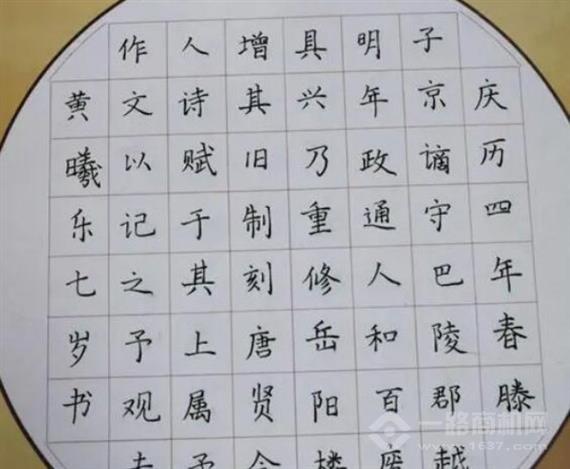 庆历四年春滕
子京谪守巴陵郡越
明年政通人和百
具兴乃重修岳阳楼
增其旧制刻唐贤今
人诗赋于其上属予
作文以记之予观
黄曦乐七岁书
一路商机网
www.1637.com